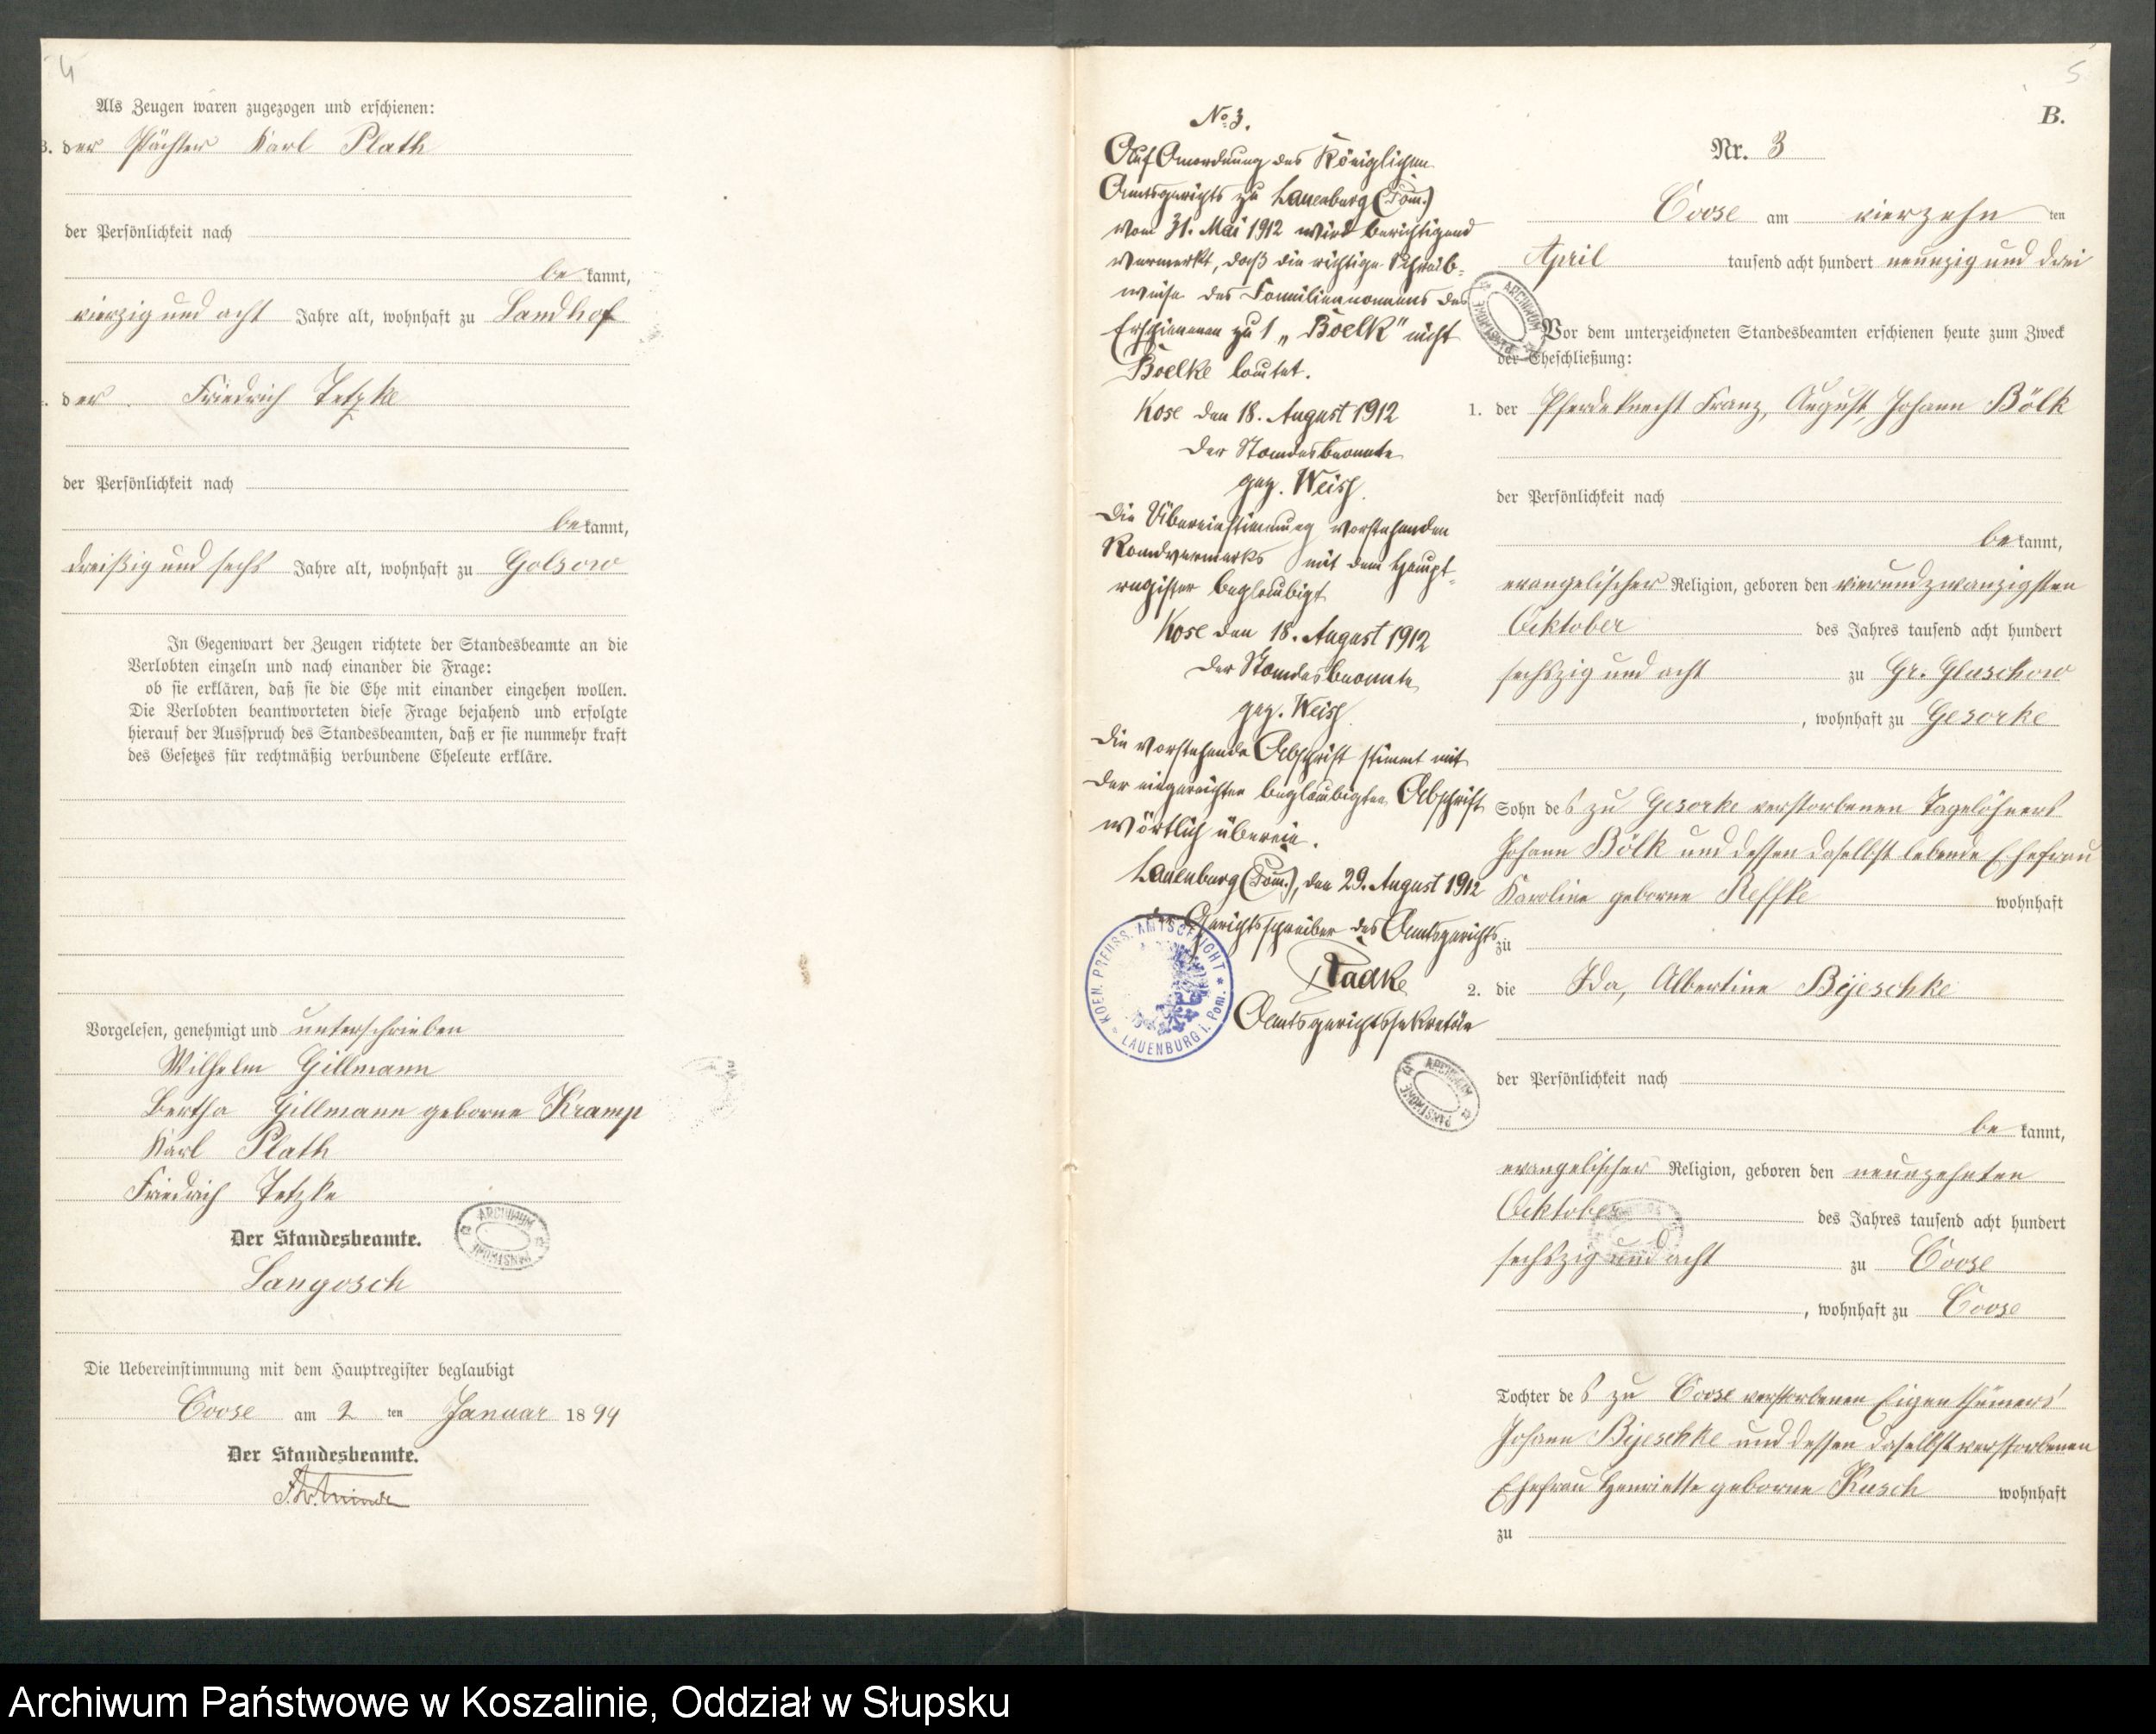 4
Als Zeugen waren zugezogen und erschienen:
3. der Pächter Karl Plath
der Persönlichkeit nach
be kannt,
vierzig und acht Jahre alt, wohnhaft zu Landhof
der Friedrich Tetzke
der Persönlichkeit nach
be kannt,
dreißig und sechs Jahre alt, wohnhaft zu Golsow
In Gegenwart der Zeugen richtete der Standesbeamte an die
Verlobten einzeln und nach einander die Frage:
ob sie erklären, daß sie die Ehe mit einander eingehen wollen.
Die Verlobten beantworteten diese Frage bejahend und erfolgte
hierauf der Ausspruch des Standesbeamten, daß er sie nunmehr kraft
des Gesetzes für rechtmäßig verbundene Eheleute erkläre.
Vorgelesen, genehmigt und unterschrieben
Wilhelm Gillmann
Bertha Gillmann geborne Kramp
Karl Plath
Friedrich Tetzke
Der Standesbeamte.
Langosch
Die Uebereinstimmung mit dem Hauptregister beglaubigt
Coose am 2 ten Januar 1894
Der Standesbeamte.
ARCHIWUM PAŃSTWOWE
5
No 3.
Auf Anordnung des Königlichen
Amtsgerichts zu Lauenburg (Pom.)
vom 31. Mai 1912 wird berichtigend
vermerkt, daß die richtige Schreib-
weise des Familiennamens des
Erschienenen zu 1 „Boelk" nicht
Boelke lautet.
Kose den 18. August 1912
Der Standesbeamte
gez. Weiss
Die Übereinstimmung vorstehenden
Randvermerks mit dem Haupt-
register beglaubigt
Kose den 18. August 1912
Der Standesbeamte
gez. Weiss
Die vorstehende Abschrift stimmt mit
der eingereichten beglaubigten Abschrift
wörtlich überein.
Lauenburg (Pom.), den 29. August 1912
Gerichtsschreiber des Amtsgerichts
Radke
Amtsgerichtssekretär
KOEN. PREUSS. AMTSGERICHT * LAUENBURG i. Pom. *
ARCHIWUM PAŃSTWOWE
B.
Nr. 3
Coose am vierzehn ten
April tausend acht hundert neunzig und drei
ARCHIWUM PAŃSTWOWE
Vor dem unterzeichneten Standesbeamten erschienen heute zum Zweck
der Eheschließung:
1. der Pferdeknecht Franz, August, Johann Bölk
der Persönlichkeit nach
be kannt,
evangelischer Religion, geboren den vierundzwanzigsten
Oktober des Jahres tausend acht hundert
sechszig und acht zu Gr. Gluschow
, wohnhaft zu Gesorke
Sohn des zu Gesorke verstorbenen Tagelöhners
Johann Bölk und dessen daselbst lebende Ehefrau
Karoline geborne Reffke wohnhaft
zu
2. die Ida, Albertine Bijeschke
der Persönlichkeit nach
be kannt,
evangelischer Religion, geboren den neunzehnten
Oktober des Jahres tausend acht hundert
sechszig und acht zu Coose
, wohnhaft zu Coose
Tochter des zu Coose verstorbenen Eigenthümers
Johann Bijeschke und dessen daselbst verstorbenen
Ehefrau Henriette geborne Kusch wohnhaft
zu
Archiwum Państwowe w Koszalinie, Oddział w Słupsku